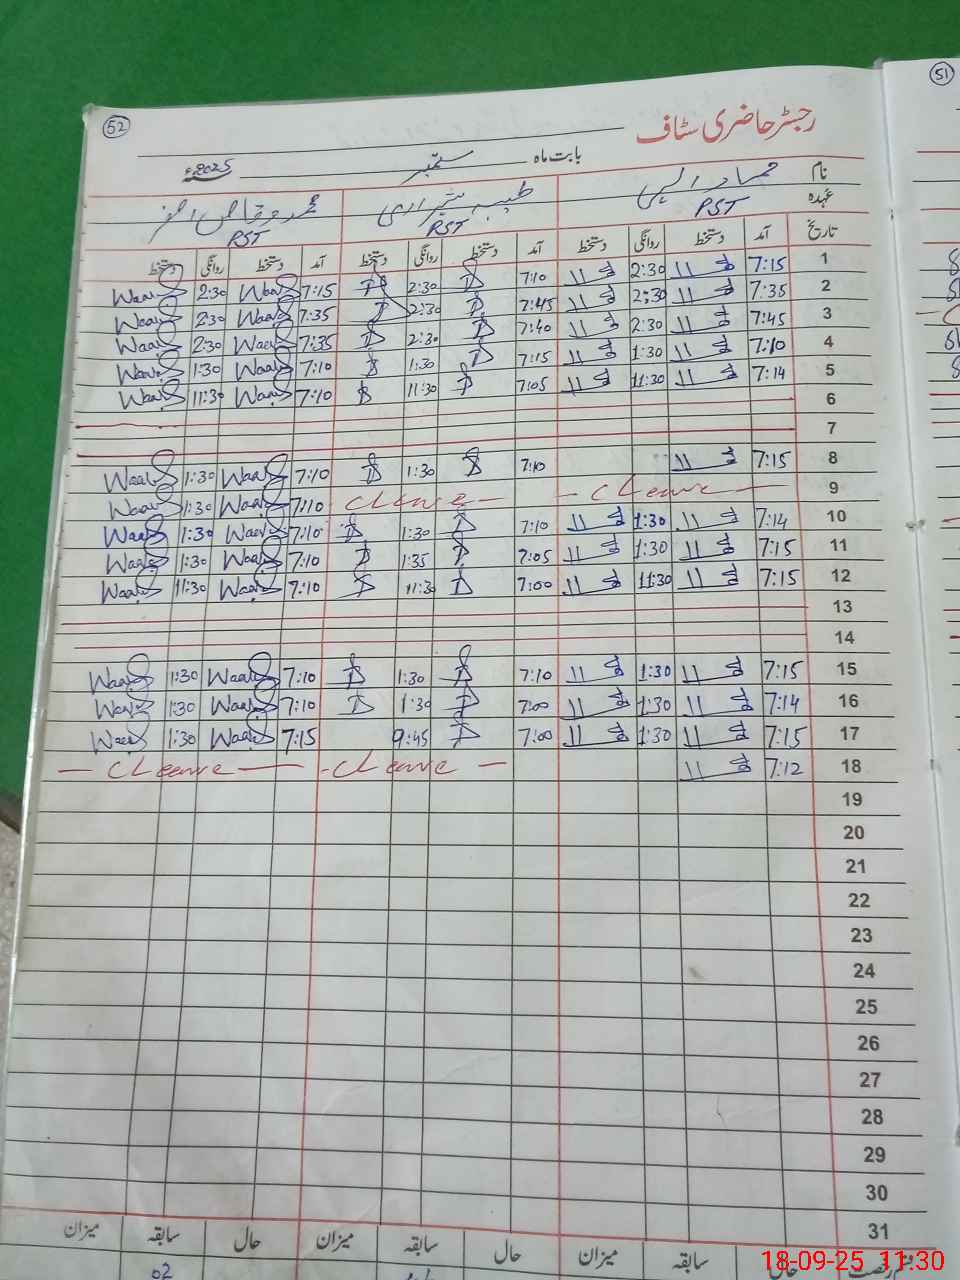 52
51
رجسٹر حاضری سٹاف
بابت ماہ ستمبر 2025ء
نام
عہدہ PST PST PST
تاریخ آمد دستخط روانگی دستخط آمد دستخط روانگی دستخط آمد دستخط روانگی دستخط
1 7:15 2:30 7:10 2:30 7:15 Waqas 2:30 Waqas
2 7:35 2:30 7:45 2:30 7:35 Waqas 2:30 Waqas
3 7:45 2:30 7:40 2:30 7:35 Waqas 2:30 Waqas
4 7:10 1:30 7:15 1:30 7:10 Waqas 1:30 Waqas
5 7:14 11:30 7:05 11:30 7:10 Waqas 11:30 Waqas
6
7
8 7:15 7:10 1:30 7:10 Waqas 1:30 Waqas
9 C Leave C Leave 7:10 Waqas 1:30 Waqas
10 7:14 1:30 7:10 1:30 7:10 Waqas 1:30 Waqas
11 7:15 1:30 7:05 1:35 7:10 Waqas 1:30 Waqas
12 7:15 11:30 7:00 11:30 7:10 Waqas 11:30 Waqas
13
14
15 7:15 1:30 7:10 1:30 7:10 Waqas 1:30 Waqas
16 7:14 1:30 7:00 1:30 7:10 Waqas 1:30 Waqas
17 7:15 1:30 7:00 9:45 7:15 Waqas 1:30 Waqas
18 7:12 C Leave C Leave
19
20
21
22
23
24
25
26
27
28
29
30
31
حال سابقہ میزان حال سابقہ میزان حال سابقہ میزان
02
18-09-25 11:30